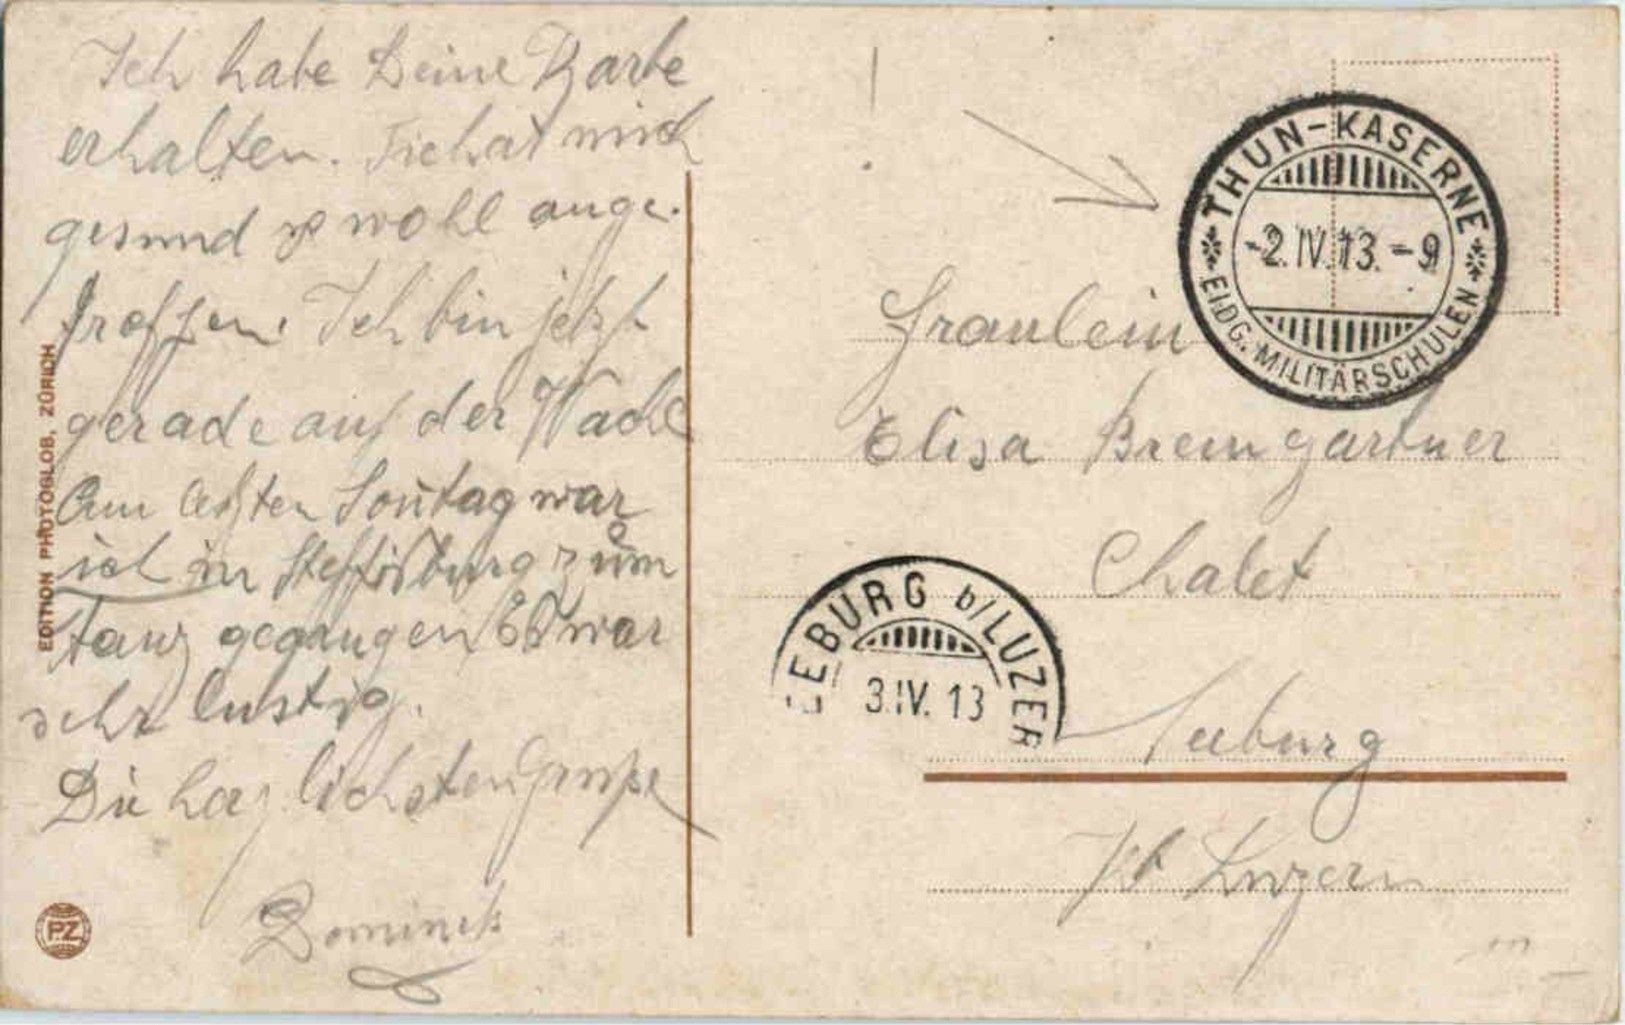 Ich habe Deine Karte
erhalten. Sie hat mich
gesund & wohl ange-
troffen. Ich bin jetzt
gerade auf der Wacht
Am letzten Sontag war
ich in Steffisburg zum
tanz gegangen Es war
sehr lustig.
Die herzlichsten Grüsse
Dominik
EDITION PHOTOGLOB, ZÜRICH
P.Z.
THUN-KASERNE
-2.IV.13.-9
EIDG. MILITÄRSCHULEN
Fräulein
Elisa Bremgartner
Chalet
Seeburg
Kt Luzern
SEEBURG b/LUZER
3.IV.13